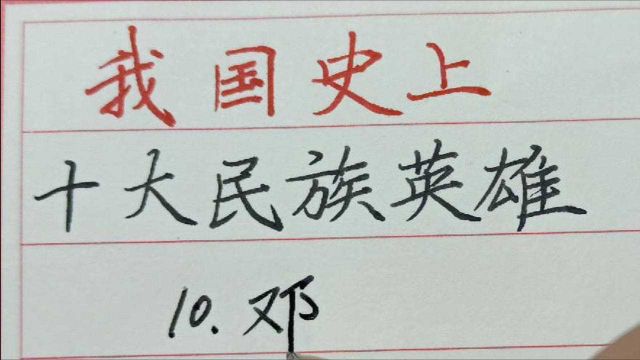 我国史上
十大民族英雄
10.邓